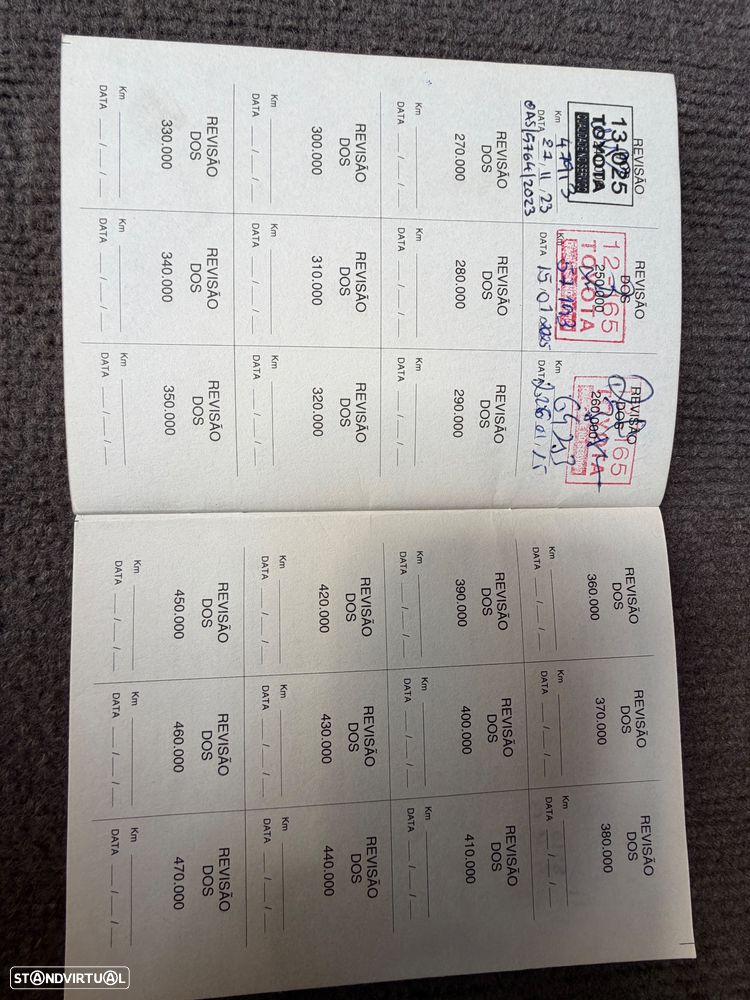 REVISÃO
13-025
TOYOTA
Km 47913
DATA 27/11/23
OAS/5764/2023
REVISÃO
DOS
250.000
12-165
TOYOTA
Km
DATA 15.01.2025
REVISÃO
DOS
260.000
165
TOYOTA
Km
DATA
REVISÃO
DOS
270.000
Km
DATA __/__/__
REVISÃO
DOS
280.000
Km
DATA __/__/__
REVISÃO
DOS
290.000
Km
DATA __/__/__
REVISÃO
DOS
300.000
Km
DATA __/__/__
REVISÃO
DOS
310.000
Km
DATA __/__/__
REVISÃO
DOS
320.000
Km
DATA __/__/__
REVISÃO
DOS
330.000
Km
DATA __/__/__
REVISÃO
DOS
340.000
Km
DATA __/__/__
REVISÃO
DOS
350.000
Km
DATA __/__/__
REVISÃO
DOS
360.000
Km
DATA __/__/__
REVISÃO
DOS
370.000
Km
DATA __/__/__
REVISÃO
DOS
380.000
Km
DATA __/__/__
REVISÃO
DOS
390.000
Km
DATA __/__/__
REVISÃO
DOS
400.000
Km
DATA __/__/__
REVISÃO
DOS
410.000
Km
DATA __/__/__
REVISÃO
DOS
420.000
Km
DATA __/__/__
REVISÃO
DOS
430.000
Km
DATA __/__/__
REVISÃO
DOS
440.000
Km
DATA __/__/__
REVISÃO
DOS
450.000
Km
DATA __/__/__
REVISÃO
DOS
460.000
Km
DATA __/__/__
REVISÃO
DOS
470.000
Km
DATA __/__/__
STANDVIRTUAL